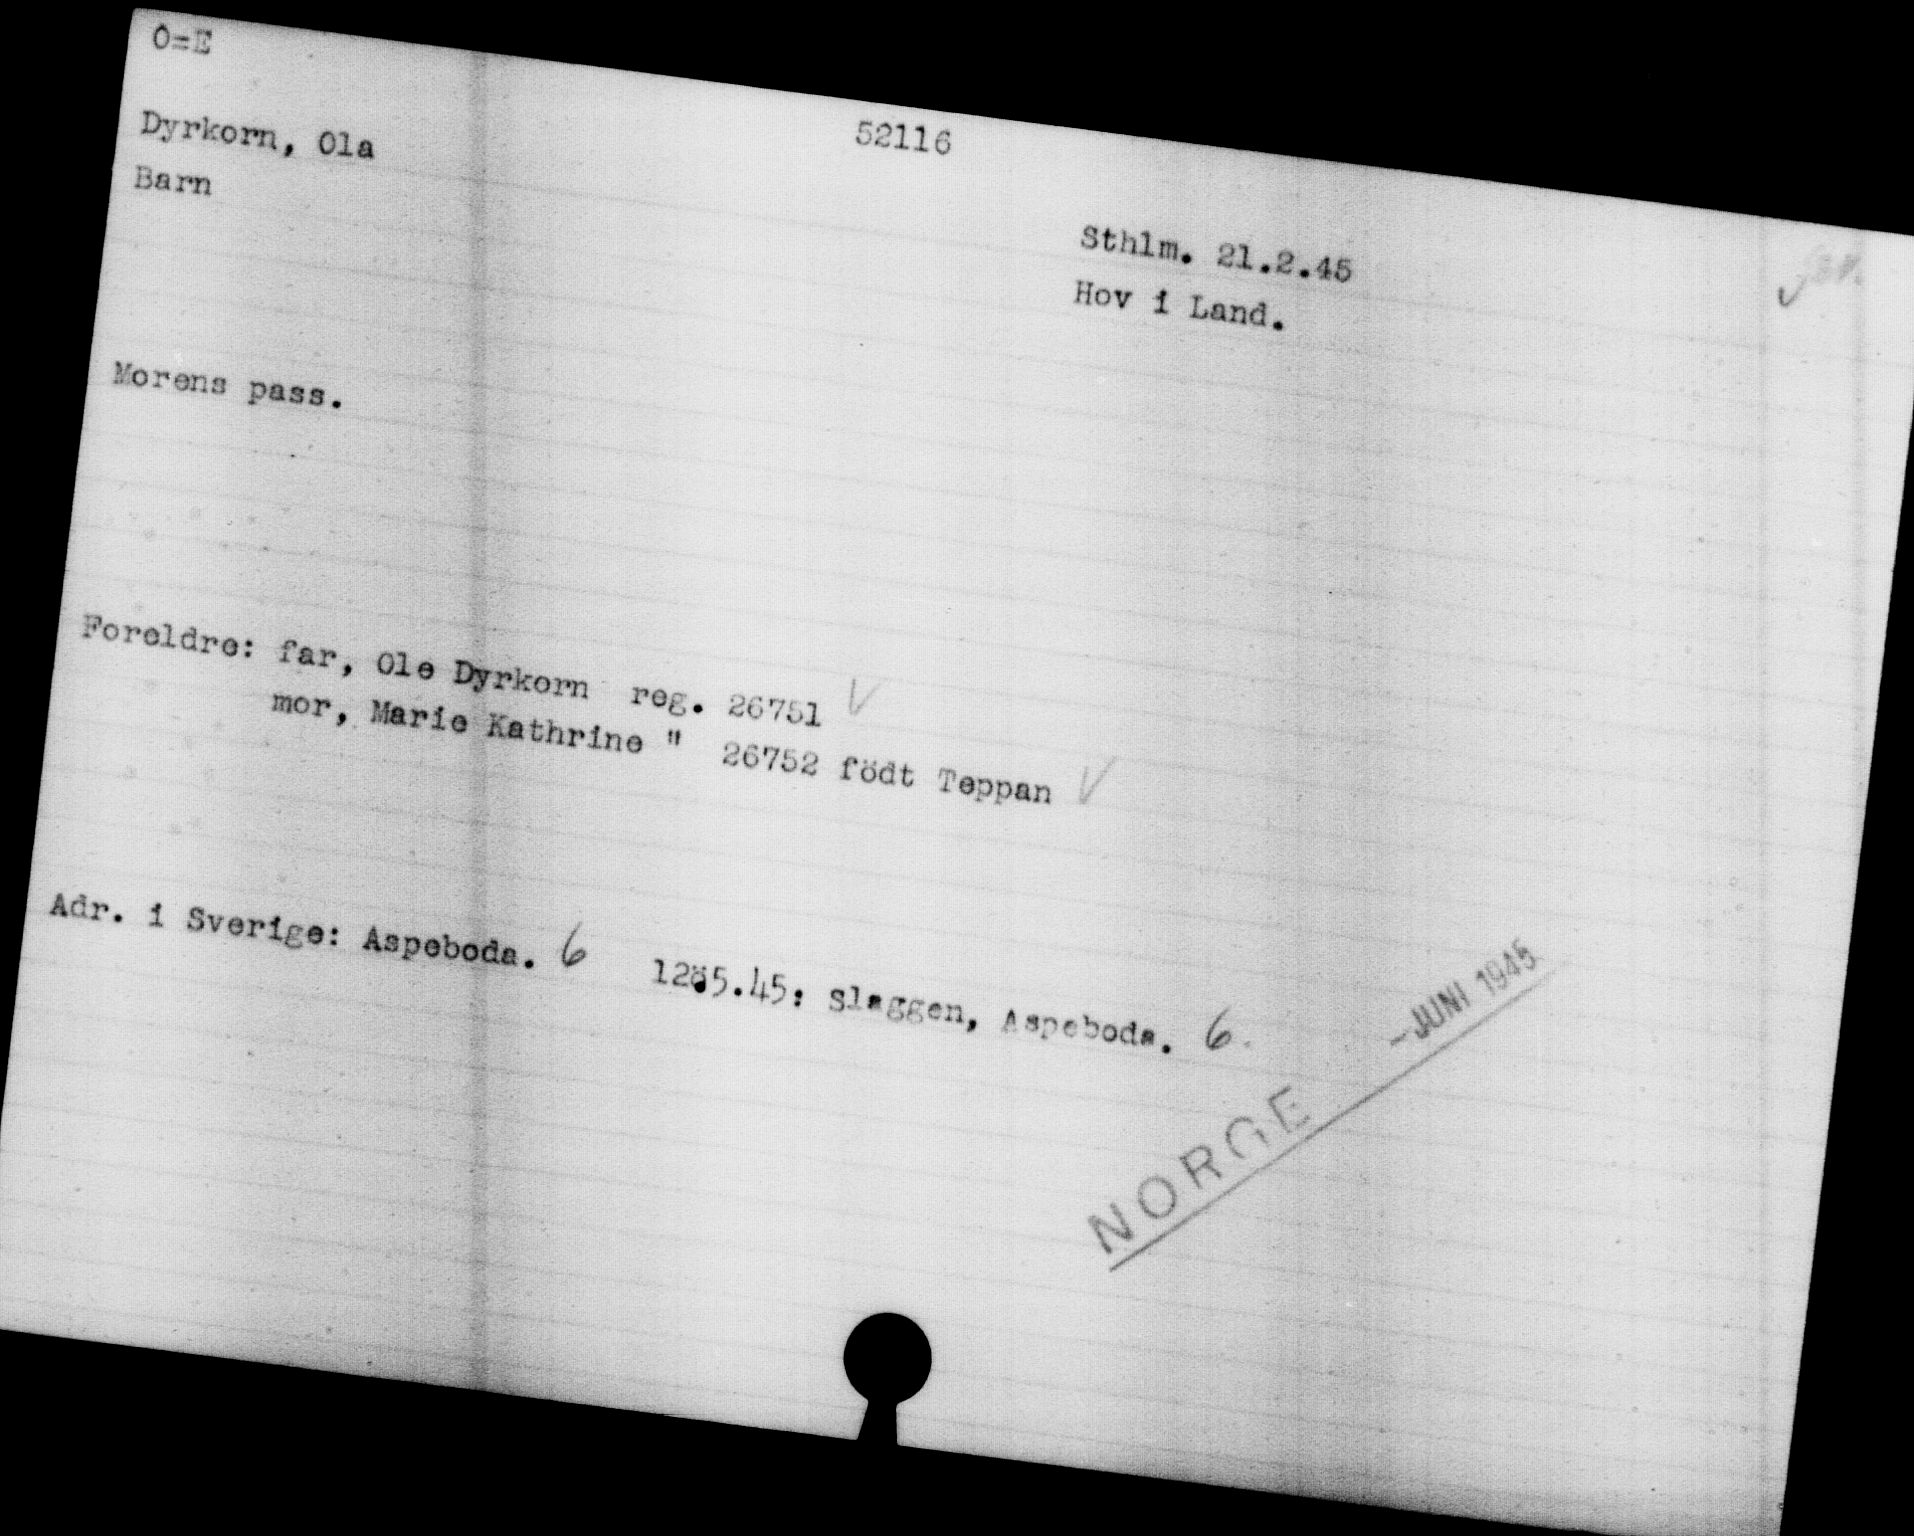 O=E
Dyrkorn, Ola
52116
Barn
Sthlm. 21.2.45
Hov i Land.
Morens pass.
Foreldre: far, Ole Dyrkorn reg. 26751 V
mor, Marie Kathrine " 26752 födt Teppan V
Adr. i Sverige: Aspeboda. 6 12.5.45: Slaggen, Aspeboda. 6.
-JUNI 1945
NORGE